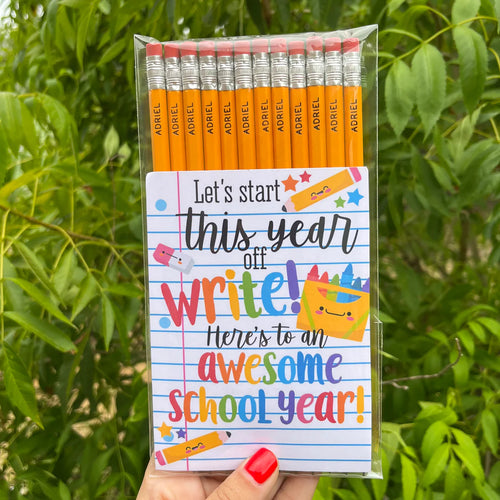 ADRIEL
ADRIEL
ADRIEL
ADRIEL
ADRIEL
ADRIEL
ADRIEL
ADRIEL
ADRIEL
ADRIEL
ADRIEL
ADRIEL
Let's start
this year
off
write!
Here's to an
awesome
school year!